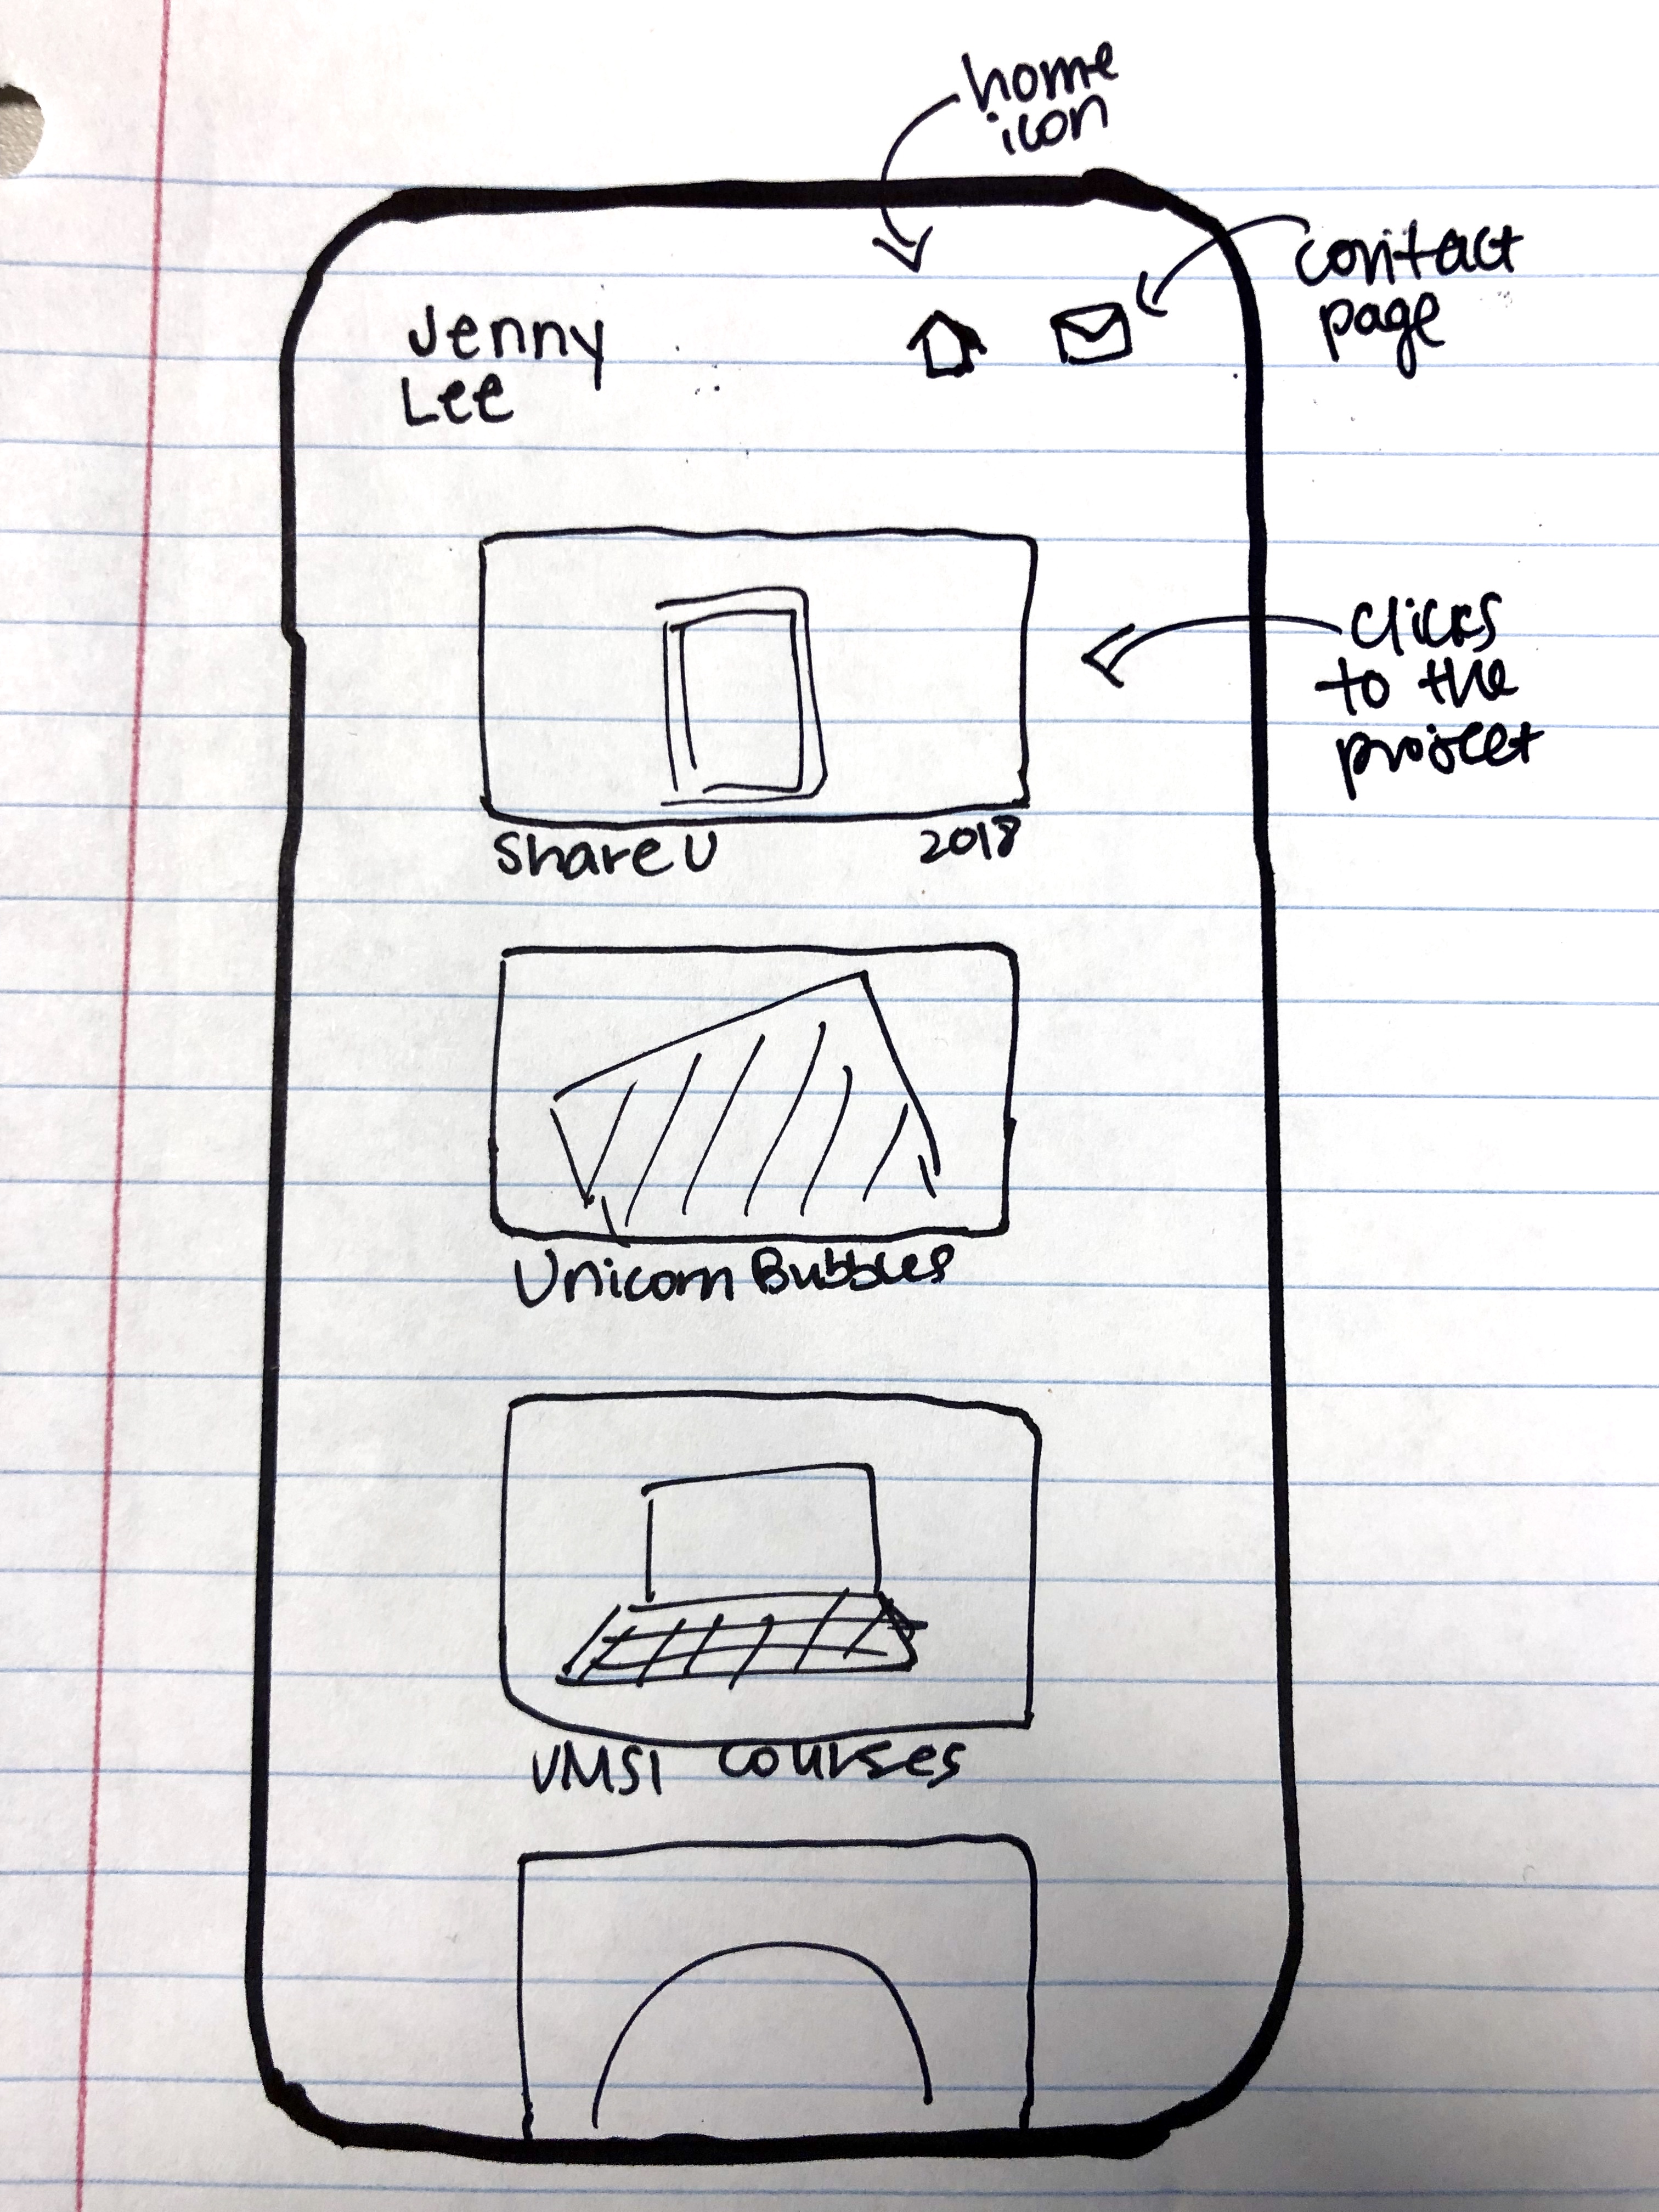 home
icon
contact
page
Jenny
Lee
clicks
to the
project
ShareU 2018
Unicorn Bubbles
UMSI courses